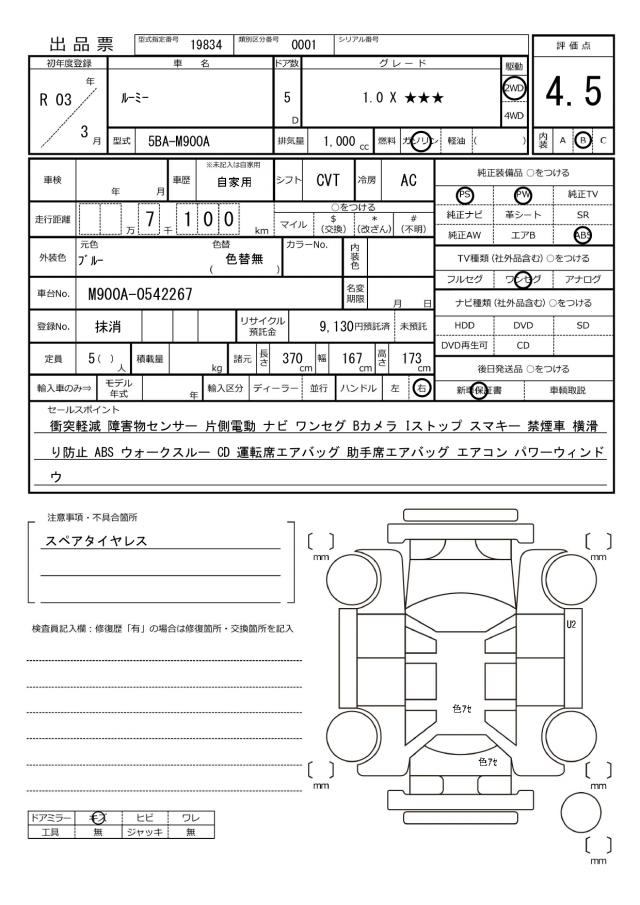 出品票 型式指定番号 19834 類別区分番号 0001 シリアル番号
評価点
4.5
初年度登録 車名 ドア数 グレード 駆動
R 03 年 3 月
ルーミー
5 D
1.0 X ★★★
2WD
4WD
型式 5BA-M900A 排気量 1,000 cc 燃料 ガソリン 軽油 ( )
内装 A B C
車検 年 月 車歴 ※未記入は自家用 自家用 シフト CVT 冷房 AC
走行距離 万 7 千 1 0 0 km
○をつける
マイル $ (交換) * (改ざん) # (不明)
外装色 元色 ブルー 色替 ( 色替無 ) カラーNo. 内装色
車台No. M900A-0542267 名変期限 月 日
登録No. 抹消 リサイクル預託金 9,130円預託済 未預託
定員 5( )人 積載量 kg 諸元 長さ 370 cm 幅 167 cm 高さ 173 cm
輸入車のみ⇒ モデル年式 年 輸入区分 ディーラー 並行 ハンドル 左 右
純正装備品 ○をつける
PS PW 純正TV
純正ナビ 革シート SR
純正AW エアB ABS
TV種類(社外品含む)○をつける
フルセグ ワンセグ アナログ
ナビ種類(社外品含む)○をつける
HDD DVD SD
DVD再生可 CD
後日発送品 ○をつける
新車保証書 車輌取説
セールスポイント
衝突軽減 障害物センサー 片側電動 ナビ ワンセグ Bカメラ Iストップ スマキー 禁煙車 横滑
り防止 ABS ウォークスルー CD 運転席エアバッグ 助手席エアバッグ エアコン パワーウィンド
ウ
注意事項・不具合箇所
スペアタイヤレス
検査員記入欄：修復歴「有」の場合は修復箇所・交換箇所を記入
〔 〕mm 〔 〕mm
U2
色アセ
色アセ
〔 〕mm 〔 〕mm
〔 〕mm
ドアミラー キズ ヒビ ワレ
工具 無 ジャッキ 無